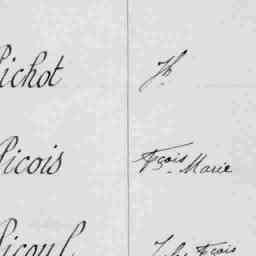 Pichot Jh
Picois Fçois Marie
Picoul Jh Fçois